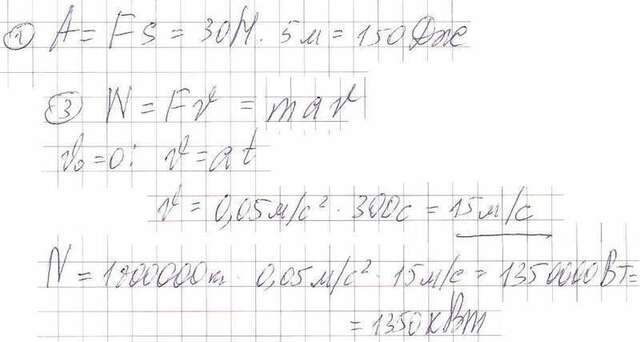 ① A = Fs = 30Н · 5м = 150 Дж
③ N = Fv = mav
v₀=0: v = at
v = 0,05м/с² · 300с = 15м/с
N = 1800000кг · 0,05м/с² · 15м/с = 1350000Вт=
= 1350кВт